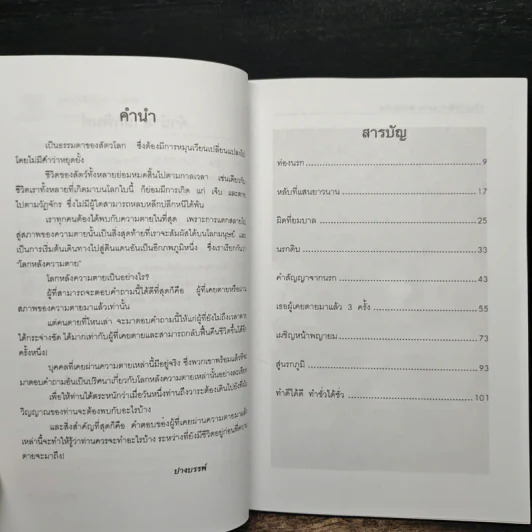 คำนำ
เป็นธรรมดาของสัตว์โลก ซึ่งต้องมีการหมุนเวียนเปลี่ยนแปลงไป
โดยไม่มีคำว่าหยุดยั้ง
ชีวิตของสัตว์ทั้งหลายย่อมหมดสิ้นไปตามกาลเวลา เช่นเดียวกับ
ชีวิตเราทั้งหลายที่เกิดมาบนโลกใบนี้ ก็ย่อมมีการเกิด แก่ เจ็บ และตาย
ไปตามวัฏจักร ซึ่งไม่มีผู้ใดสามารถหลบหลีกปลีกหนีได้พ้น
เราทุกคนต้องได้พบกับความตายในที่สุด เพราะการแตกสลายไป
สู่สภาพของความตายนั้นเป็นสิ่งสุดท้ายที่เราจะสัมผัสได้บนโลกมนุษย์ และ
เป็นการเริ่มต้นเดินทางไปสู่ดินแดนอันเป็นอีกภพภูมิหนึ่ง ซึ่งเราเรียกกัน
"โลกหลังความตาย"
โลกหลังความตายเป็นอย่างไร?
ผู้ที่สามารถจะตอบคำถามนี้ได้ดีที่สุดก็คือ ผู้ที่เคยตายหรือ
สภาพของความตายมาแล้วเท่านั้น
แต่คนตายที่ไหนเล่า จะมาตอบคำถามนี้ให้แก่ผู้ที่ยังไม่ถึงเวลา
ได้กระจ่างชัด ได้มากเท่ากับผู้ที่เคยตายและสามารถกลับฟื้นคืนชีวิตขึ้นได้อีก
ครั้งหนึ่ง!
บุคคลที่เคยผ่านความตายเหล่านี้มีอยู่จริง ซึ่งพวกเขาพร้อมแล้วที่จะ
มาตอบคำถามอันเป็นปริศนาเกี่ยวกับโลกหลังความตายเหล่านั้นอย่าง
เพื่อให้ท่านได้ตระหนักว่าเมื่อวันหนึ่งท่านถึงวาระต้องเดินไปยัง
วิญญาณของท่านจะต้องพบกับอะไรบ้าง
และสิ่งสำคัญที่สุดก็คือ คำตอบของผู้ที่เคยผ่านความตายมา
เหล่านี้จะทำให้รู้ว่าท่านควรจะทำอะไรบ้าง ระหว่างที่ยังมีชีวิตอยู่ก่อนที่ความ
ตายจะมาถึง!
ปางบรรพ์
สารบัญ
ท่องนรก 9
หลับที่แสนยาวนาน 17
ผิดที่ยมบาล 25
นรกดิบ 33
คำสัญญาจากนรก 43
เธอผู้เคยตายมาแล้ว 3 ครั้ง 55
เผชิญหน้าพญายม 73
สู่นรกภูมิ 93
ทำดีได้ดี ทำชั่วได้ชั่ว 101